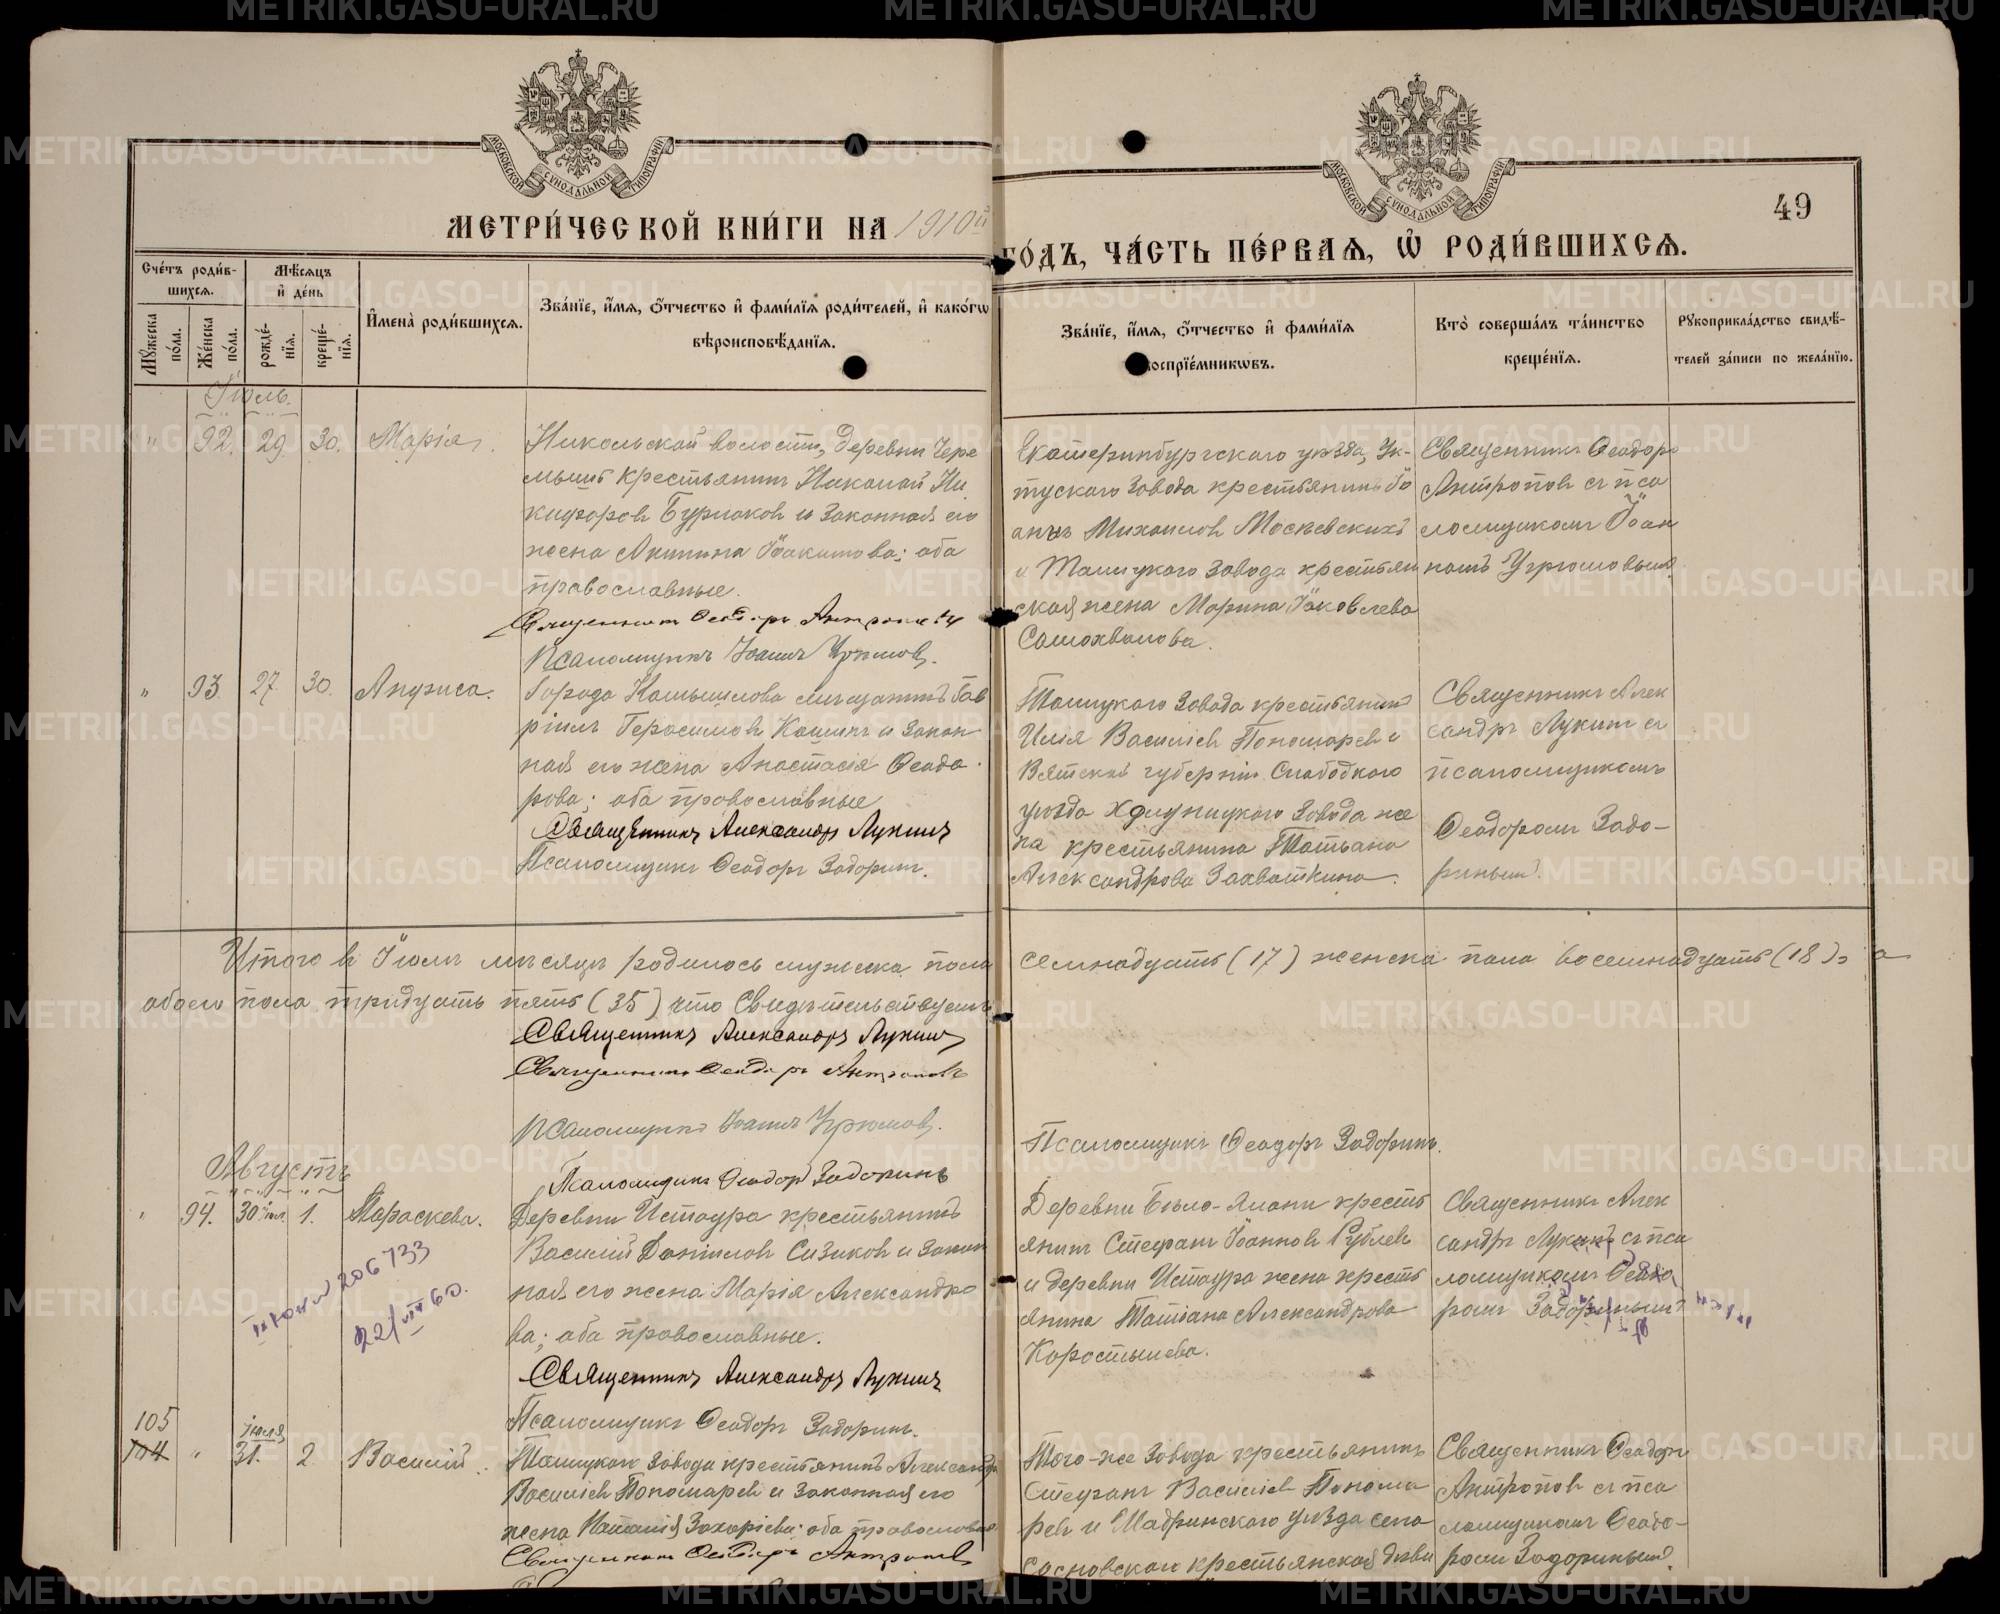 МЕТРИ́ЧЕСКОЙ КНИ́ГИ НА 1910й
ГО́ДЪ, ЧА́СТЬ ПЕ́РВАѦ, Ѡ҆ РОДИ́ВШИХСѦ.
49
Сче́тъ роди́в-
шихсѧ.
Мѣ́сѧцъ
и҆ де́нь
И҆мена̀ роди́вшихсѧ.
Зва́нїе, и҆́мѧ, ѻ҆́тчество и҆ фами́лїѧ роди́телей, и҆ како́гѡ
вѣроисповѣ́данїѧ.
Мꙋ́жеска
по́ла.
Же́нска
по́ла.
рожде́-
нїѧ.
креще́-
нїѧ.
Зва́нїе, и҆́мѧ, ѻ҆́тчество и҆ фами́лїѧ
воспрїе́мникѡвъ.
Кто̀ соверша́лъ та́инство
креще́нїѧ.
Рꙋкоприкла́дство свидѣ́-
телей за́писи по жела́нїю.
Іюль.
" 92. 29. 30. Марія.
Никольской волости, деревни Чере
мышъ крестьянинъ Николай Ни
кифоровъ Бурлаковъ и законная его
жена Акилина Іоакимова; оба
православные.
Священникъ Ѳеодоръ Антроповъ
Псаломщикъ Іоаннъ Угрюмовъ.
Екатеринбургскаго уѣзда, Ук-
тускаго завода крестьянинъ Іо
аннъ Михаиловъ Мосѣевскихъ
и Талицкаго завода крестьян
ская жена Марина Іаковлева
Самохвалова.
Священникъ Ѳеодоръ
Антроповъ съ пса
ломщикомъ Іоан
номъ Угрюмовымъ.
" 93. 27. 30. Анфиса.
Города Камышлова мѣщанинъ Гав
ріилъ Герасимовъ Кашинъ и закон
ная его жена Анастасія Ѳеодо
рова; оба православные
Священникъ Александръ Лукинъ
Псаломщикъ Ѳеодоръ Задоринъ.
Талицкаго завода крестьянинъ
Илія Василіевъ Пономаревъ и
Вятской губерніи Слободского
уѣзда Холуницкаго завода же
на крестьянина Татьяна
Александрова Захваткина.
Священникъ Алек
сандръ Лукинъ съ
псаломщикомъ
Ѳеодоромъ Задо-
ринымъ.
Итого въ Іюлѣ мѣсяцѣ родилось мужеска пола семнадцать (17) женска пола восемнадцать (18), а
обоего пола тридцать пять (35) что свидѣтельствуемъ
Священникъ Александръ Лукинъ
Священникъ Ѳеодоръ Антроповъ
Псаломщикъ Іоаннъ Угрюмовъ.
Псаломщикъ Ѳеодоръ Задоринъ.
Псаломщикъ Ѳеодоръ Задоринъ
Августъ
" 94. 30 іюл. 1. Параскева.
206733
22/VII 60.
Деревни Истоура крестьянинъ
Василій Даніиловъ Сизиковъ и закон
ная его жена Марія Александро
ва; оба православные.
Священникъ Александръ Лукинъ
Псаломщикъ Ѳеодоръ Задоринъ.
Деревни Бѣло-Елани кресть
янинъ Стефанъ Іоанновъ Рублевъ
и деревни Истоура жена кресть
янина Татіана Александрова
Коростылева.
Священникъ Алек
сандръ Лукинъ съ пса
ломщикомъ Ѳеодо
ромъ Задоринымъ
105
104 " іюля 31. 2. Василій.
Талицкаго завода крестьянинъ Александръ
Василіевъ Пономаревъ и законная его
жена Наталія Захаріева; оба православные
Священникъ Ѳеодоръ Антроповъ
Того-же завода крестьянинъ
Стефанъ Василіевъ Понома
ревъ и Шадринскаго уѣзда села
Сосновскаго крестьянская дѣви
Священникъ Ѳеодоръ
Антроповъ съ пса
ломщикомъ Ѳеодо-
ромъ Задоринымъ.